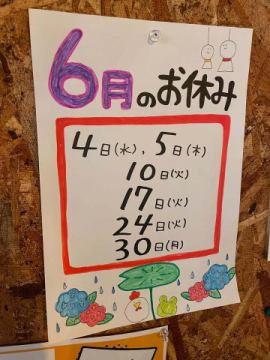 6月のお休み
4日(水)、5日(木)
10日(火)
17日(火)
24日(火)
30日(月)